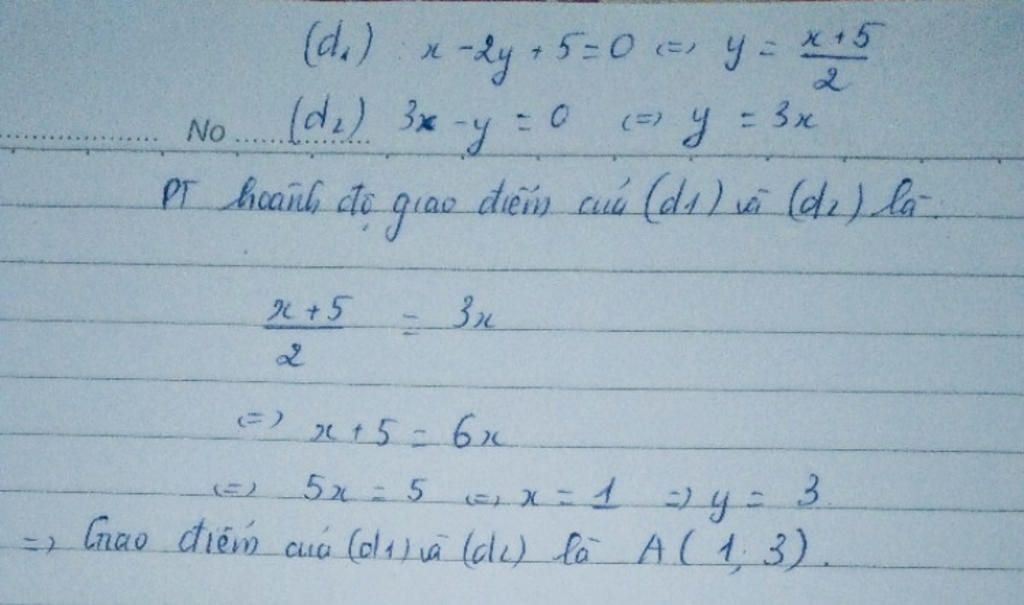 (d₁) x - 2y + 5 = 0 <=> y = (x + 5)/2
No (d₂) 3x - y = 0 <=> y = 3x
PT hoành độ giao điểm của (d1) và (d₂) là
(x + 5)/2 = 3x
<=> x + 5 = 6x
<=> 5x = 5 <=> x = 1 => y = 3
=> Giao điểm của (d1) và (d₂) là A(1; 3).